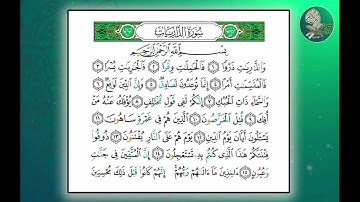 سُورَةُ الذَّارِيَاتِ
بِسْمِ اللَّهِ الرَّحْمَٰنِ الرَّحِيمِ
وَالذَّارِيَاتِ ذَرْوًا ۝١ فَالْحَامِلَاتِ وِقْرًا ۝٢ فَالْجَارِيَاتِ يُسْرًا ۝٣
فَالْمُقَسِّمَاتِ أَمْرًا ۝٤ إِنَّمَا تُوعَدُونَ لَصَادِقٌ ۝٥ وَإِنَّ الدِّينَ لَوَاقِعٌ ۝٦
وَالسَّمَاءِ ذَاتِ الْحُبُكِ ۝٧ إِنَّكُمْ لَفِي قَوْلٍ مُخْتَلِفٍ ۝٨ يُؤْفَكُ عَنْهُ مَنْ
أُفِكَ ۝٩ قُتِلَ الْخَرَّاصُونَ ۝١٠ الَّذِينَ هُمْ فِي غَمْرَةٍ سَاهُونَ ۝١١
يَسْأَلُونَ أَيَّانَ يَوْمُ الدِّينِ ۝١٢ يَوْمَ هُمْ عَلَى النَّارِ يُفْتَنُونَ ۝١٣ ذُوقُوا
فِتْنَتَكُمْ هَٰذَا الَّذِي كُنْتُمْ بِهِ تَسْتَعْجِلُونَ ۝١٤ إِنَّ الْمُتَّقِينَ فِي جَنَّاتٍ
وَعُيُونٍ ۝١٥ آخِذِينَ مَا آتَاهُمْ رَبُّهُمْ إِنَّهُمْ كَانُوا قَبْلَ ذَٰلِكَ مُحْسِنِينَ